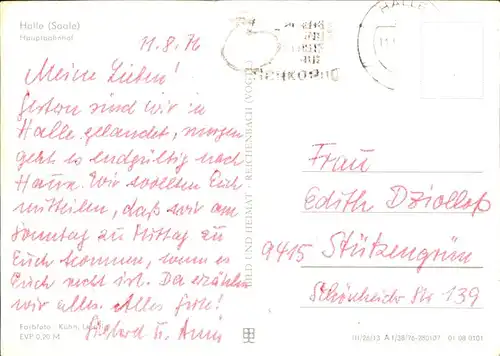 Halle (Saale)
Hauptbahnhof
11.8.76
Meine Lieben!
Gestern sind wir in
Halle gelandet, morgen
geht es endgültig nach
Hause. Wir wollten Euch
mitteilen, daß wir am
Sonntag zu Mittag zu
Euch kommen, wenn es
Euch recht ist. Da erzählen
wir alles. Alles Gute!
u. Anni
Farbfoto Kühn,
EVP 0,20 M
BILD UND HEIMAT · REICHENBACH (VOGTL)
HALLE
Frau
Edith Dziolloß
9415 Stützengrün
Schönheider Str 139
III/26/13 A 1/38/76-280107 01 08 0101